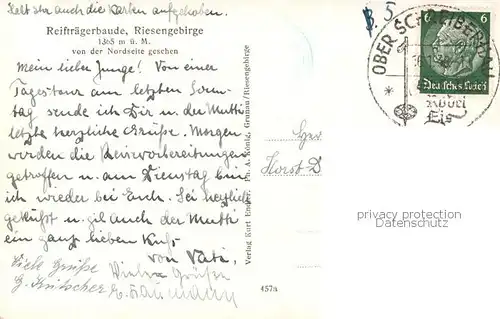 Habt ihr auch die Karten aufgehoben.
Reifträgerbaude, Riesengebirge
1365 m ü. M.
von der Nordseite gesehen
Mein lieber Junge! Von einer
Tagestour am letzten Sonn-
tag sende ich Dir u. der Mutti
letzte herzliche Grüße. Morgen
werden die Reisevorbereitungen
getroffen u. am Dienstag bin
ich wieder bei Euch. Sei herzlich
geküßt u. gib auch der Mutti
ein ganz lieben Kuß
von Vati.
Viele Grüße
Grüße
457a
Verlag Kurt Endler, Ph. A. König, Grunau/Riesengebirge
Herr
Horst D
OBER SCHREIBERHAU
6 6
Deutsches Reich
Rodel
Eis
privacy protection
Datenschutz